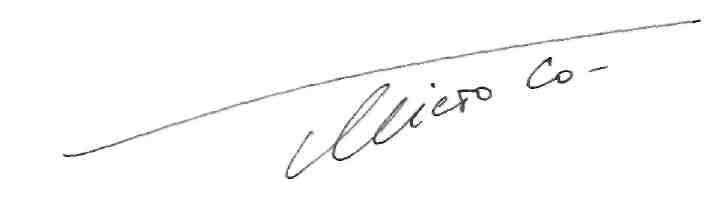 Micro Co-